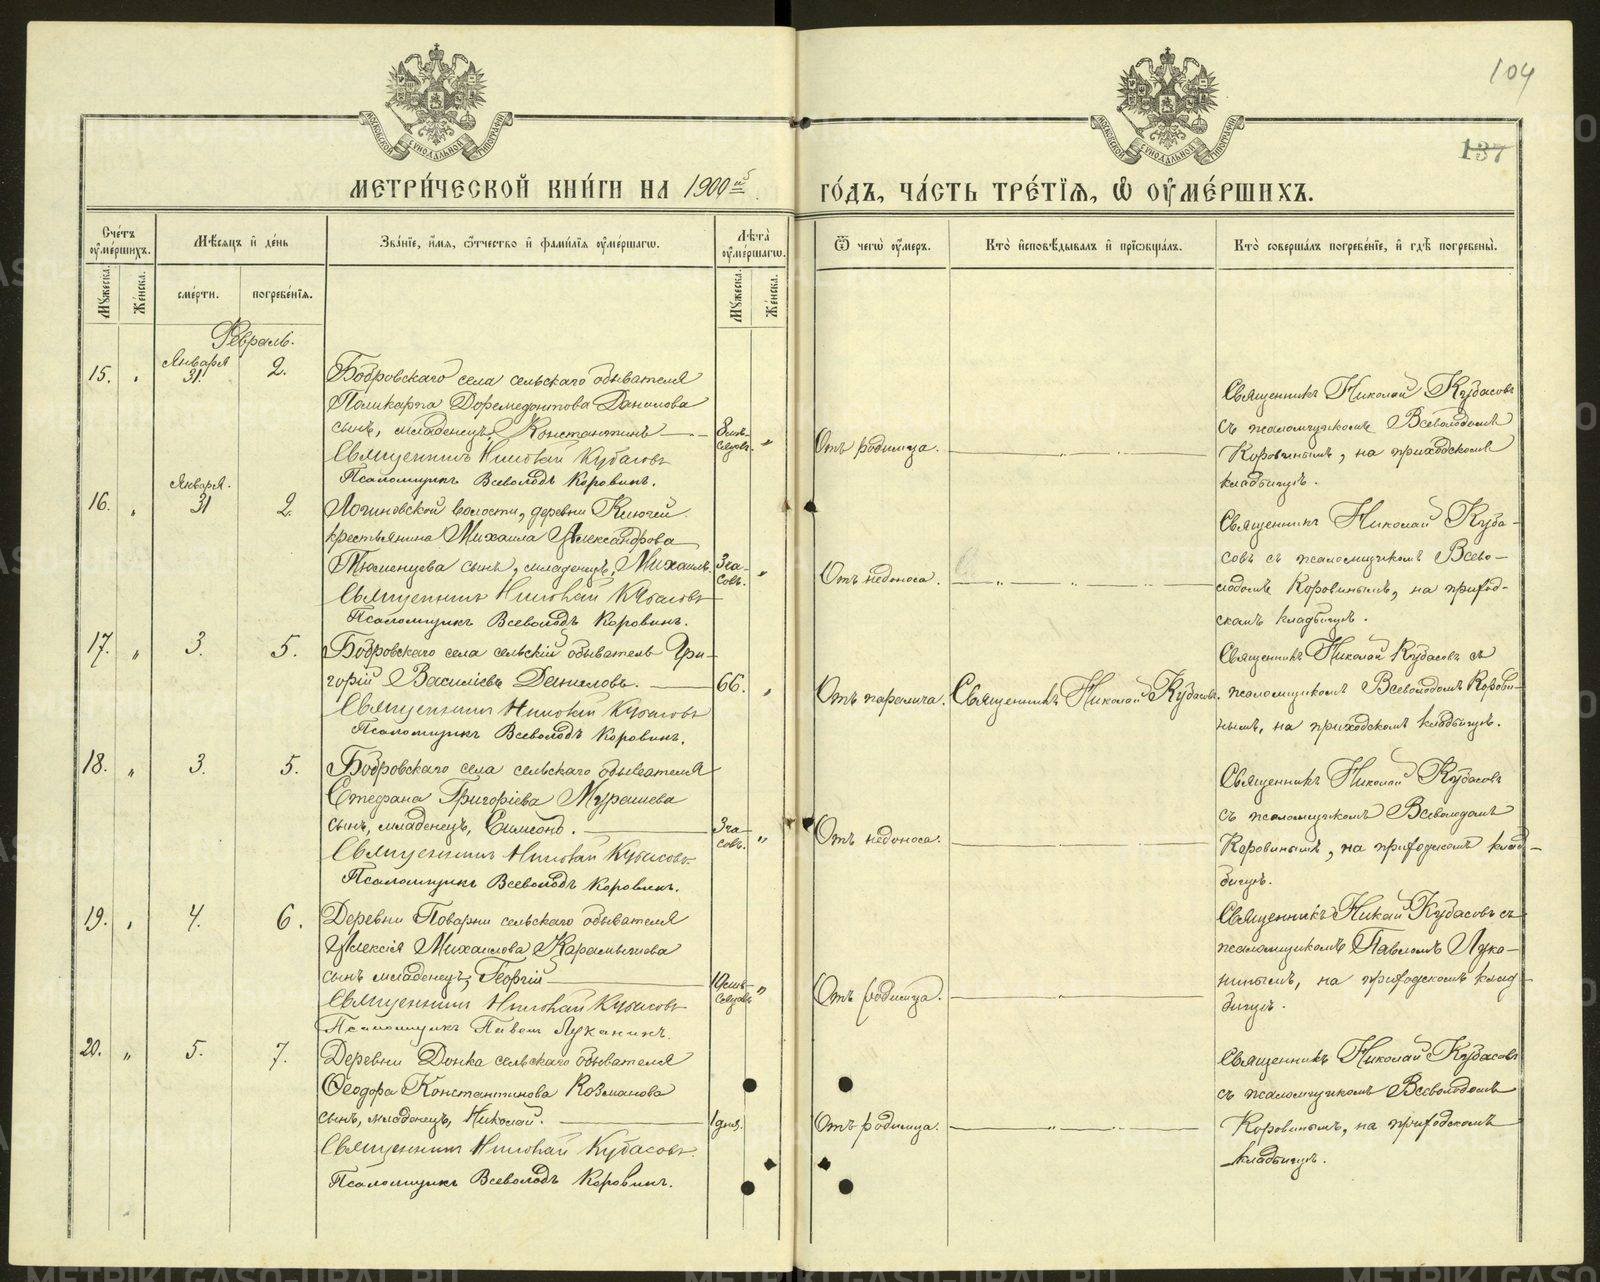 104
137
МОСКОВСКОЙ СѴНОДАЛЬНОЙ ТИПОГРАФІИ
МОСКОВСКОЙ СѴНОДАЛЬНОЙ ТИПОГРАФІИ
МЕТРИ́ЧЕСКОЙ КНИ́ГИ НА 1900й
ГО́ДЪ, ЧА́СТЬ ТРЕ́ТІѦ, Ѡ҆ ОУ҆МЕ́РШИХЪ.
Сче́тъ оу҆ме́ршихъ.
Мѣ́сѧцъ и҆ де́нь
Зва́нїе, и҆́мѧ, ѻ҆́тчество и҆ фами́лїѧ оу҆ме́ршагѡ.
Лѣ́та оу҆ме́ршагѡ.
Ѿ чегѡ̀ оу҆́меръ.
Кто̀ и҆сповѣ́дывалъ и҆ прїѡбща́лъ.
Кто̀ соверша́лъ погребе́нїе, и҆ гдѣ̀ погребены̀.
Мꙋ́жеска. Же́нска.
сме́рти.
погребе́нїѧ.
Мꙋ́жеска. Же́нска.
Февраль.
15. " Января 31. 2.
Бобровскаго села сельскаго обывателя
Поликарпа Дормедонтова Данилова
сынъ, младенецъ, Константинъ
Священникъ Николай Кубасовъ
Псаломщикъ Всеволодъ Коровинъ.
"
Отъ родимца.
Священникъ Николай Кубасовъ
съ псаломщикомъ Всеволодомъ
Коровинымъ, на приходскомъ
кладбищѣ.
16. " Января. 31 2.
Логиновской волости, деревни Ключей
крестьянина Михаила Александрова
Тюменцева сынъ, младенецъ, Михаилъ.
Священникъ Николай Кубасовъ
Псаломщикъ Всеволодъ Коровинъ.
3 ча-
совъ. "
Отъ недоноса.
Священникъ Николай Куба-
совъ съ псаломщикомъ Всево-
лодомъ Коровинымъ, на приход-
скомъ кладбищѣ.
17. " 3. 5.
Бобровскаго села сельскій обыватель Гри-
горій Василіевъ Даниловъ.
Священникъ Николай Кубасовъ
Псаломщикъ Всеволодъ Коровинъ.
66. "
Отъ паралича.
Священникъ Николай Кубасовъ.
Священникъ Николай Кубасовъ съ
псаломщикомъ Всеволодомъ Корови-
нымъ, на приходскомъ кладбищѣ.
18. " 3. 5.
Бобровскаго села сельскаго обывателя
Стефана Григоріева Мурашева
сынъ, младенецъ, Симеонъ.
Священникъ Николай Кубасовъ
Псаломщикъ Всеволодъ Коровинъ.
3 ча-
совъ. "
Отъ недоноса.
Священникъ Николай Кубасовъ
съ псаломщикомъ Всеволодомъ
Коровинымъ, на приходскомъ клад-
бищѣ.
19. " 4. 6.
Деревни Поварни сельскаго обывателя
Алексія Михаилова Карамышова
сынъ младенецъ, Георгій
Священникъ Николай Кубасовъ
Псаломщикъ Павелъ Луканинъ.
"
Отъ родимца.
Священникъ Никай Кубасовъ съ
псаломщикомъ Павломъ Лука-
нинымъ, на приходскомъ клад-
бищѣ.
20. " 5. 7.
Деревни Донка сельскаго обывателя
Ѳеодора Константинова Козманова
сынъ, младенецъ, Николай.
Священникъ Николай Кубасовъ.
Псаломщикъ Всеволодъ Коровинъ.
1 дня.
Отъ родимца.
Священникъ Николай Кубасовъ
съ псаломщикомъ Всеволодомъ
Коровинымъ, на приходскомъ
кладбищѣ.
METRIKI.GASO-URAL.RU